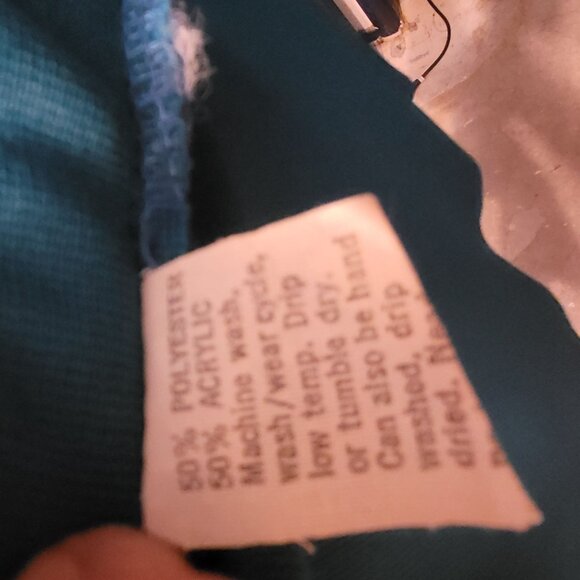 50% POLYESTER
50% ACRYLIC
Machine wash,
wash/wear cycle,
low temp. Drip
or tumble dry.
Can also be hand
washed, drip
dried.